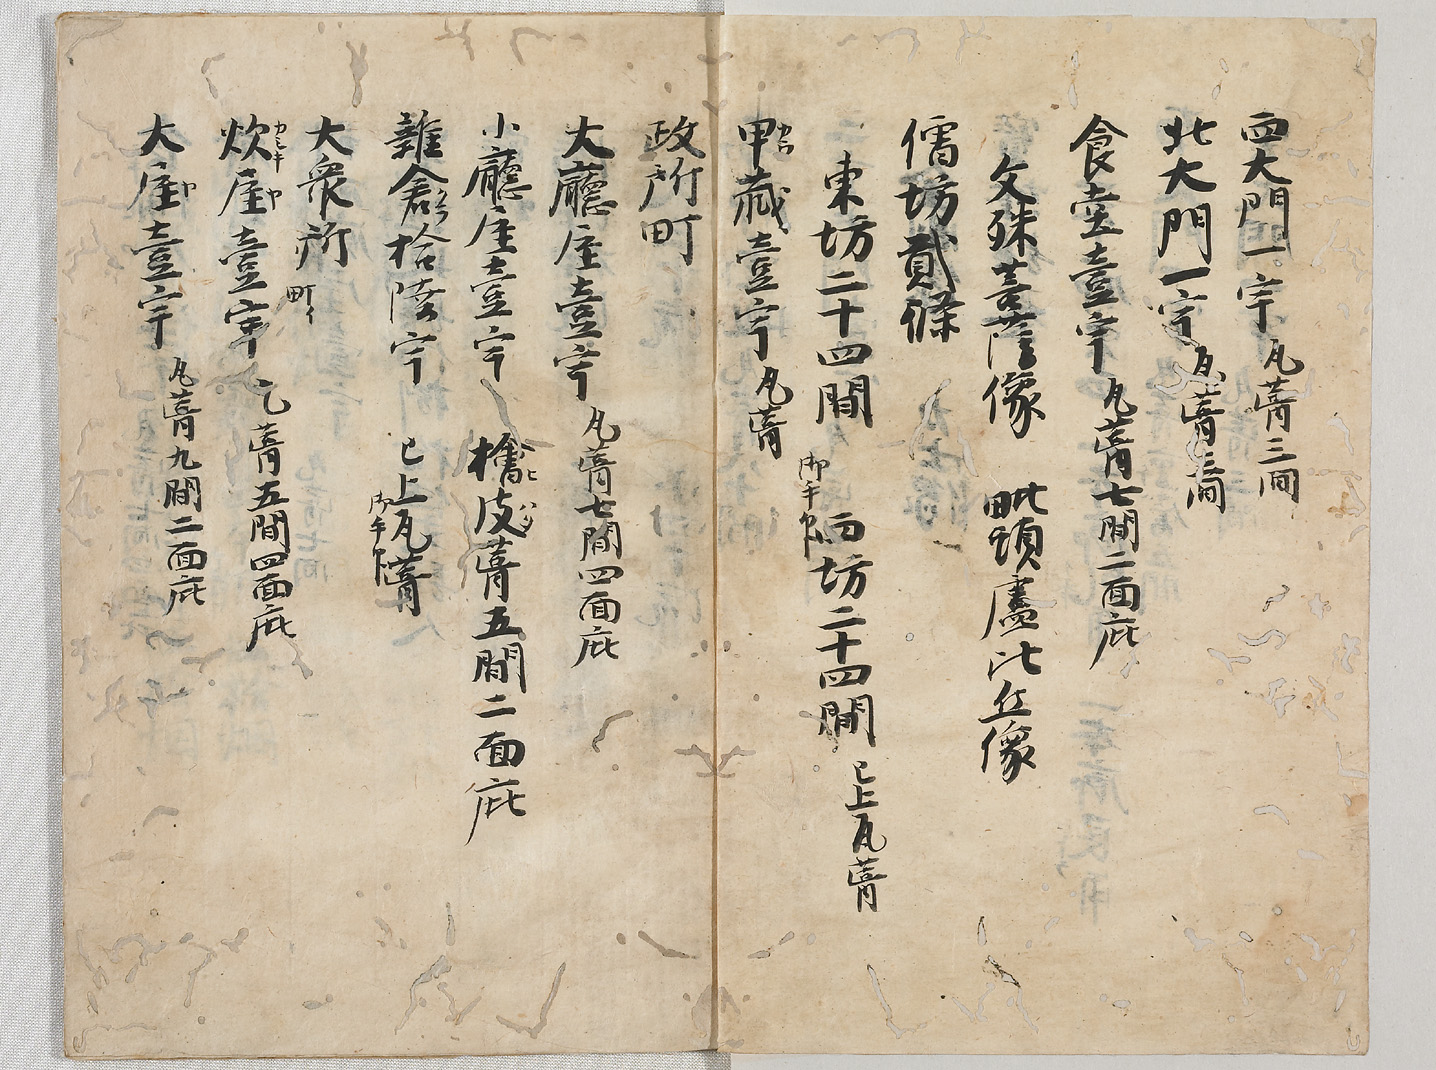 西大門一宇 瓦葺三間
北大門一宇 瓦葺三間
食堂壹宇 瓦葺七間二面庇
文殊菩薩像 毗頭盧比丘像
僧坊貳條
東坊二十四間 西坊二十四間 已上瓦葺
御手印
甲藏壹宇 瓦葺
政所町
大廳屋壹宇 瓦葺七間四面庇
小廳屋壹宇 檜皮葺五間二面庇
雜舍拾陸宇 已上瓦葺
御手印
大衆所
町イ
炊屋壹宇 瓦葺五間四面庇
大屋壹宇 瓦葺九間二面庇